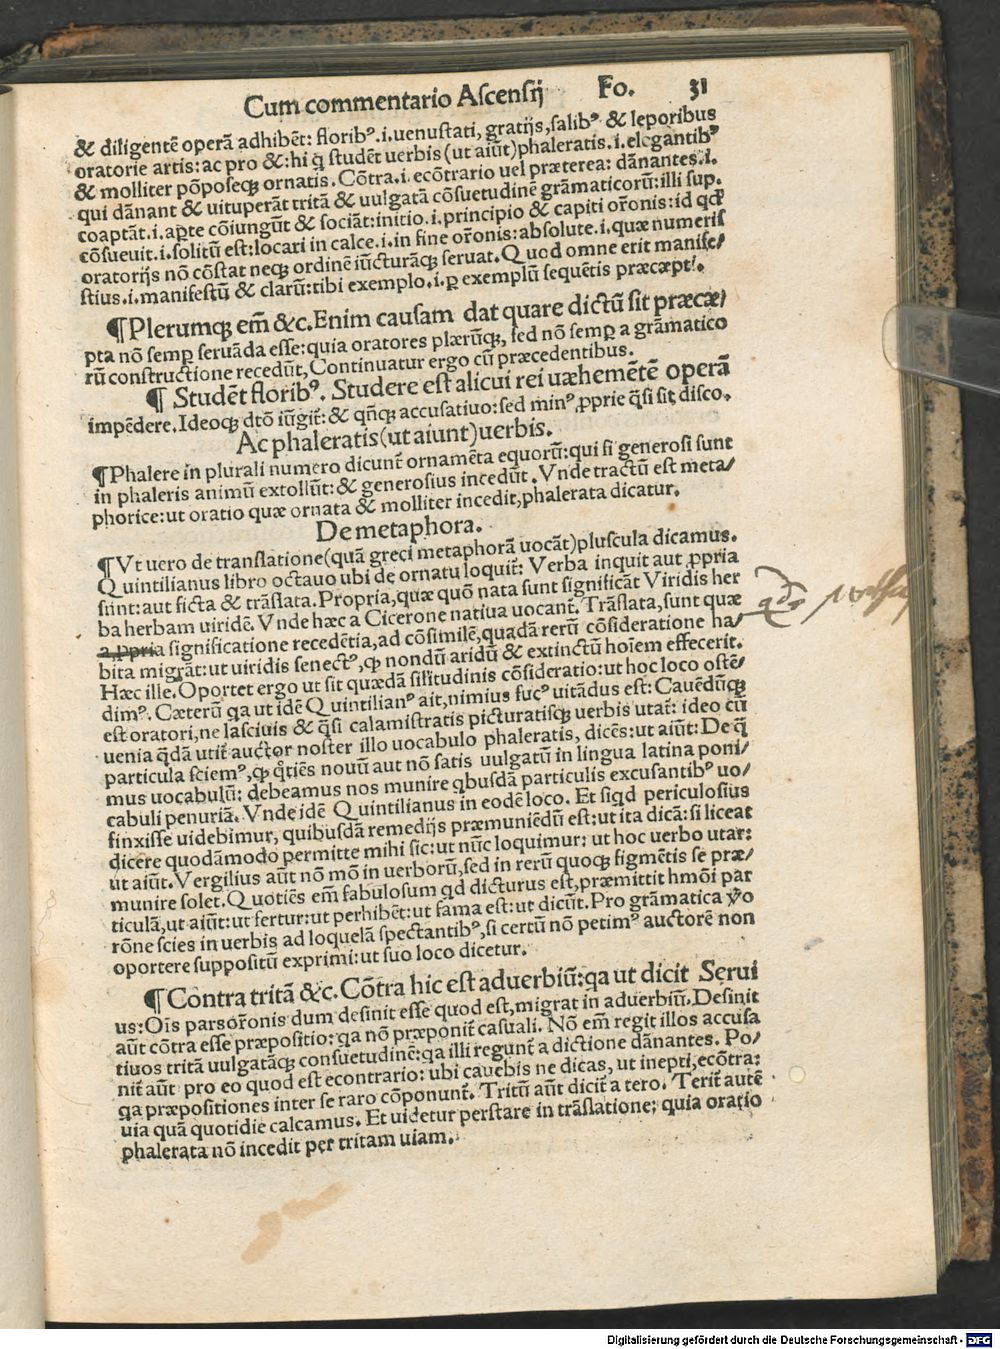 Cum commentario Ascensij Fo. 31
& diligentē operā adhibēt: florib⁹.i.uenustati, gratijs, salib⁹ & leporibus
oratorie artis: ac pro &: hi q̃ studēt uerbis (ut aiūt) phaleratis.i.elegantib⁹
& molliter pōposeq; ornatis. Cōtra.i.ecōtrario uel præterea: dānantes.i.
qui dānant & uituperāt tritā & uulgatā cōsuetudinē grāmaticorū: illi sup.
coaptāt.i.apte cōiungūt & sociāt: initio.i.principio & capiti or̄onis: id qd̄
cōsueuit.i.solitū est: locari in calce.i.in fine or̄onis: absolute.i.quæ numeris
oratorijs nō cōstat neq; ordinē iūcturāq; seruat. Quod omne erit manife/
stius.i.manifestū & clarū: tibi exemplo.i.ꝑ exemplū sequētis præcæpti.
¶ Plerumq; em̄ &c. Enim causam dat quare dictū sit præcæ/
pta nō semꝑ seruāda esse: quia oratores plærūq;, sed nō semꝑ a grāmatico
rū constructione recedūt, Continuatur ergo cū præcedentibus.
¶ Studēt florib⁹. Studere est alicui rei uæhemētē operā
impēdere. Ideoq; dtō iūgit̄: & qn̄q; accusatiuo: sed min⁹ ꝓprie q̄si sit disco.
Ac phaleratis (ut aiunt) uerbis.
¶ Phalere in plurali numero dicunt̄ ornamēta equorū: qui si generosi sunt
in phaleris animū extollūt: & generosius incedūt. Vnde tractū est meta/
phorice: ut oratio quæ ornata & molliter incedit, phalerata dicatur.
De metaphora.
¶ Vt uero de translatione (quā greci metaphorā uocāt) pluscula dicamus.
Quintilianus libro octauo ubi de ornatu loquit̄: Verba inquit aut ꝓpria
sunt: aut ficta & trāslata. Propria, quæ quō nata sunt significāt Viridis her
ba herbam uiridē. Vnde hæc a Cicerone natiua uocant̄. Trāslata, sunt quæ
a ꝓpria significatione recedētia, ad cōsimilē, quadā rerū cōsideratione ha/
bita migrāt: ut uiridis senect⁹, ꝙ nondū aridū & extinctū hoīem effecerit.
Hæc ille. Oportet ergo ut sit quædā silitudinis cōsideratio: ut hoc loco ostē/
dim⁹. Cæterū qa ut idē Quintilian⁹ ait, nimius fuc⁹ uitādus est: Cauēdūq;
est oratori, ne lasciuis & q̄si calamistratis picturatisq; uerbis utat̄: ideo cū
uenia q̄dā utit̄ auctor noster illo uocabulo phaleratis, dicēs: ut aiūt: De q̄
particula sciem⁹, ꝙ q̄tiēs nouū aut nō satis uulgatū in lingua latina poni/
mus uocabulū: debeamus nos munire qbusdā particulis excusantib⁹ uo/
cabuli penuriā. Vnde idē Quintilianus in eodē loco. Et siqd periculosius
finxisse uidebimur, quibusdā remedijs præmuniēdū est: ut ita dicā: si liceat
dicere quodāmodo permitte mihi sic: ut nūc loquimur: ut hoc uerbo utar:
ut aiūt. Vergilius aūt nō mō in uerborū, sed in rerū quoq; figmētis se præ/
munire solet. Quotiēs em̄ fabulosum qd dicturus est, præmittit hmōi par
ticulā, ut aiūt: ut fertur: ut perhibēt: ut fama est: ut dicūt. Pro grāmatica ꝟo
rōne scies in uerbis ad loquelā spectantib⁹, si certū nō petim⁹ auctorē non
oportere suppositū exprimi: ut suo loco dicetur.
¶ Contra tritā &c. Cōtra hic est aduerbiū: qa ut dicit Serui
us: Oīs pars or̄onis dum desinit esse quod est, migrat in aduerbiū. Desinit
aūt cōtra esse præpositio: qa nō præponit̄ casuali. Nō em̄ regit illos accusa
tiuos tritā uulgatāq; consuetudinē: qa illi regunt̄ a dictione dānantes. Po/
nit̄ aūt pro eo quod est econtrario: ubi cauebis ne dicas, ut inepti, ecōtra:
qa præpositiones inter se raro cōponunt̄. Tritū aūt dicit̄ a tero. Terit̄ autē
uia quā quotidie calcamus. Et uidetur perstare in trāslatione: quia oratio
phalerata nō incedit per tritam uiam.
Digitalisierung gefördert durch die Deutsche Forschungsgemeinschaft - DFG